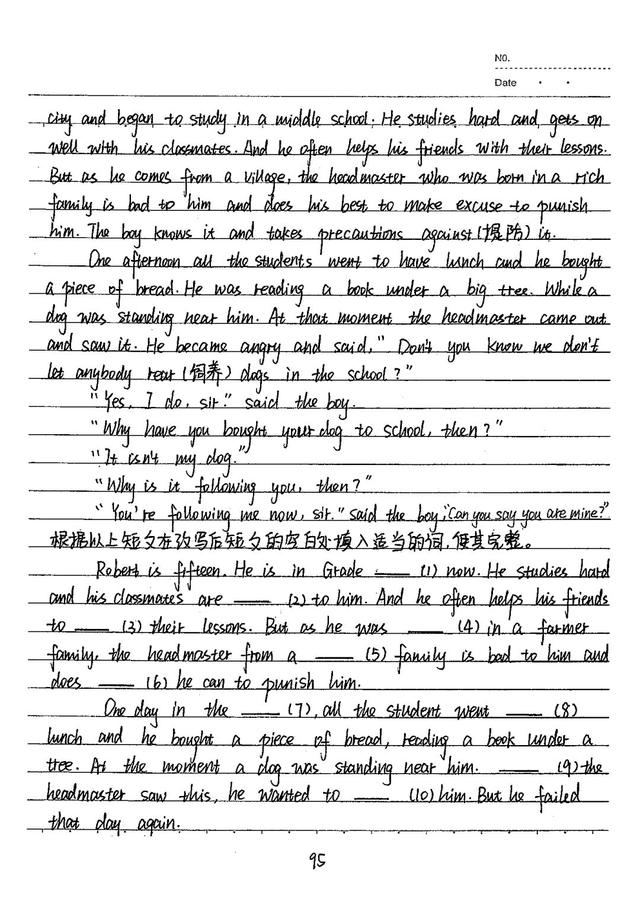 NO.
Date
city and began to study in a middle school. He studies hard and gets on
well with his classmates. And he often helps his friends with their lessons.
But as he comes from a village, the headmaster who was born in a rich
family is bad to him and does his best to make excuse to punish
him. The boy knows it and takes precautions against (提防) it.
One afternoon all the students went to have lunch and he bought
a piece of bread. He was reading a book under a big tree. While a
dog was standing near him. At that moment the headmaster came out
and saw it. He became angry and said, " Don't you know we don't
let anybody rear (饲养) dogs in the school?"
"Yes, I do, sir." said the boy.
"Why have you bought your dog to school, then?"
"It isn't my dog."
"Why is it following you, then?"
"You're following me now, sir." said the boy, "Can you say you are mine?"
根据以上短文在改写后短文的空白处填入适当的词,使其完整。
Robert is fifteen. He is in Grade ___ (1) now. He studies hard
and his classmates are ___ (2) to him. And he often helps his friends
to ___ (3) their lessons. But as he was ___ (4) in a farmer
family, the headmaster from a ___ (5) family is bad to him and
does ___ (6) he can to punish him.
One day in the ___ (7), all the student went ___ (8)
lunch and he bought a piece of bread, reading a book under a
tree. At the moment a dog was standing near him. ___ (9) the
headmaster saw this, he wanted to ___ (10) him. But he failed
that day again.
95